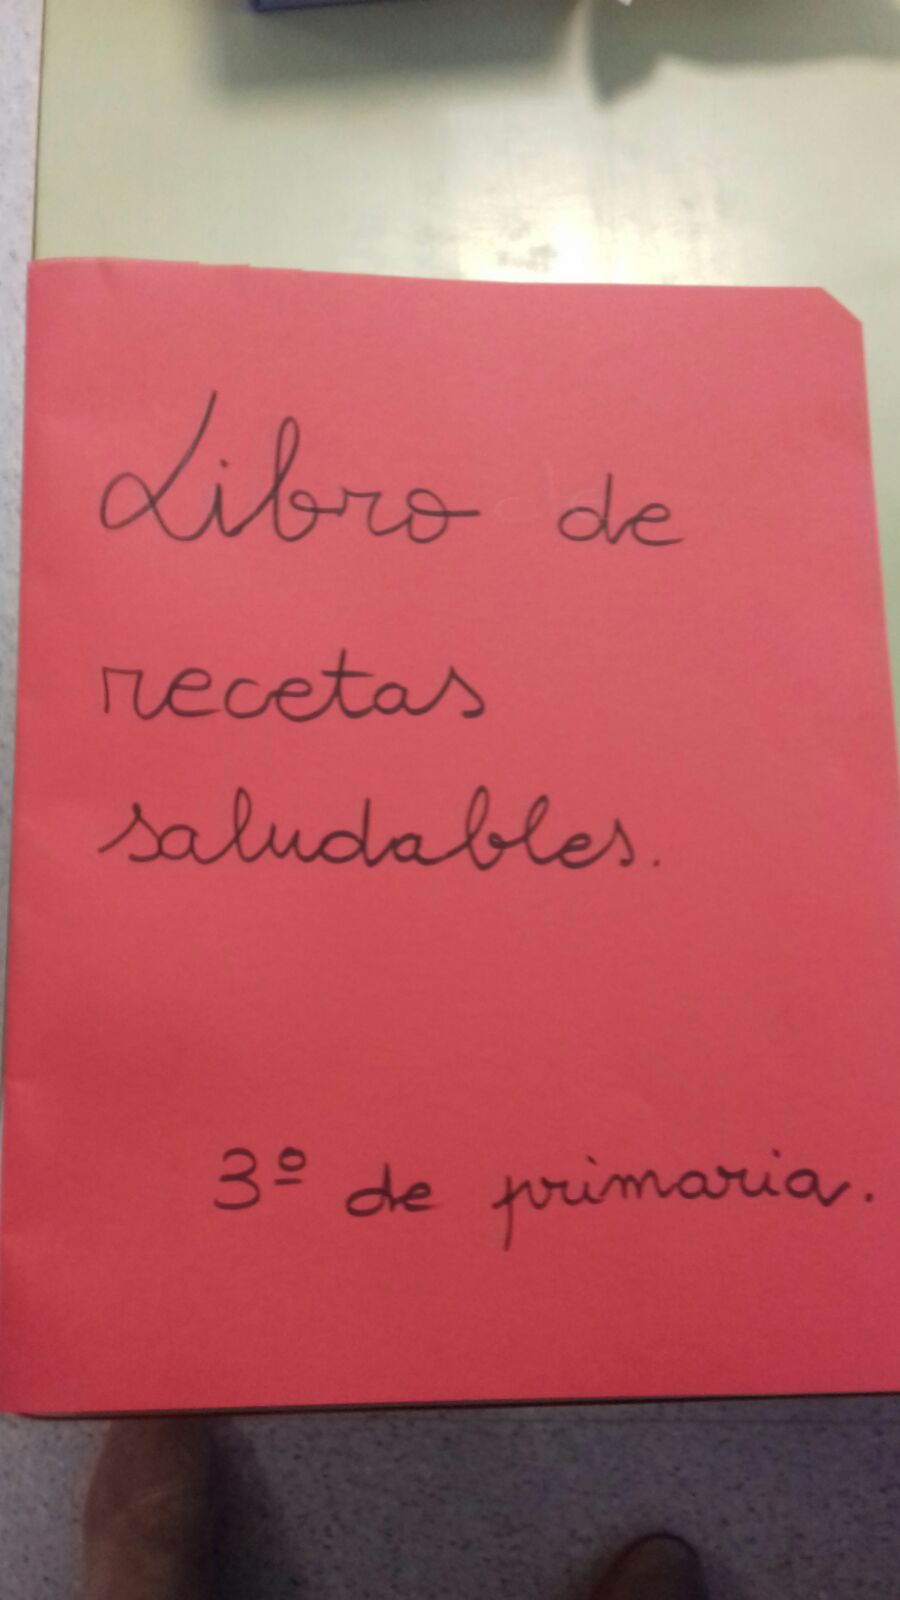 Libro de
recetas
saludables.
3º de primaria.